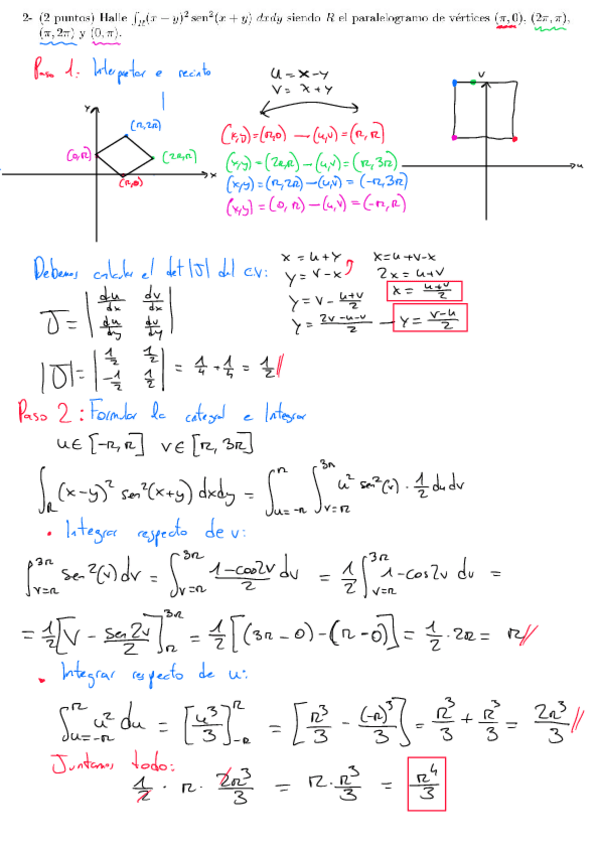 2- (2 puntos) Halle ∫_R (x − y)² sen²(x + y) dxdy siendo R el paralelogramo de vértices (π, 0), (2π, π),
(π, 2π) y (0, π).
Paso 1: Interpretar e recinto
u = x-y
v = x+y
y
x
(π,2π)
(0,π)
(2π,π)
(π,0)
v
u
(x,y)=(π,0) — (u,v)=(π,π)
(x,y)=(2π,π) — (u,v)=(π,3π)
(x,y)=(π,2π) — (u,v)=(-π,3π)
(x,y)=(0,π) — (u,v)=(-π,π)
Debemos calcular el det |J| del cv:
x = u+y
y = v-x
y = v - (u+v)/2
y = (2v-u-v)/2 — y = (v-u)/2
x = u+v-x
2x = u+v
x = (u+v)/2
J = | du/dx dv/dx |
| du/dy dv/dy |
|J| = | 1/2 1/2 |
| -1/2 1/2 | = 1/4 + 1/4 = 1/2 //
Paso 2: Formular la integral e Integrar
u∈[-π,π] v∈[π,3π]
∫_R (x-y)² sen²(x+y) dxdy = ∫_{u=-π}^{π} ∫_{v=π}^{3π} u² sen²(v) · 1/2 du dv
• Integrar respecto de v:
∫_{v=π}^{3π} sen²(v) dv = ∫_{v=π}^{3π} (1-cos2v)/2 dv = 1/2 ∫_{v=π}^{3π} 1-cos2v dv =
= 1/2 [v - sen2v/2]_{π}^{3π} = 1/2 [(3π-0)-(π-0)] = 1/2 · 2π = π //
• Integrar respecto de u:
∫_{u=-π}^{π} u² du = [u³/3]_{-π}^{π} = [π³/3 - (-π)³/3] = π³/3 + π³/3 = 2π³/3 //
Juntamos todo:
1/2 · π · 2π³/3 = π · π³/3 = π⁴/3